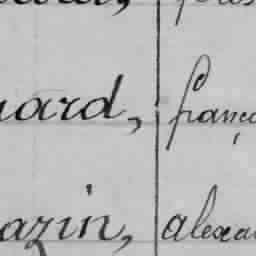 nard, franç
azin, alexa